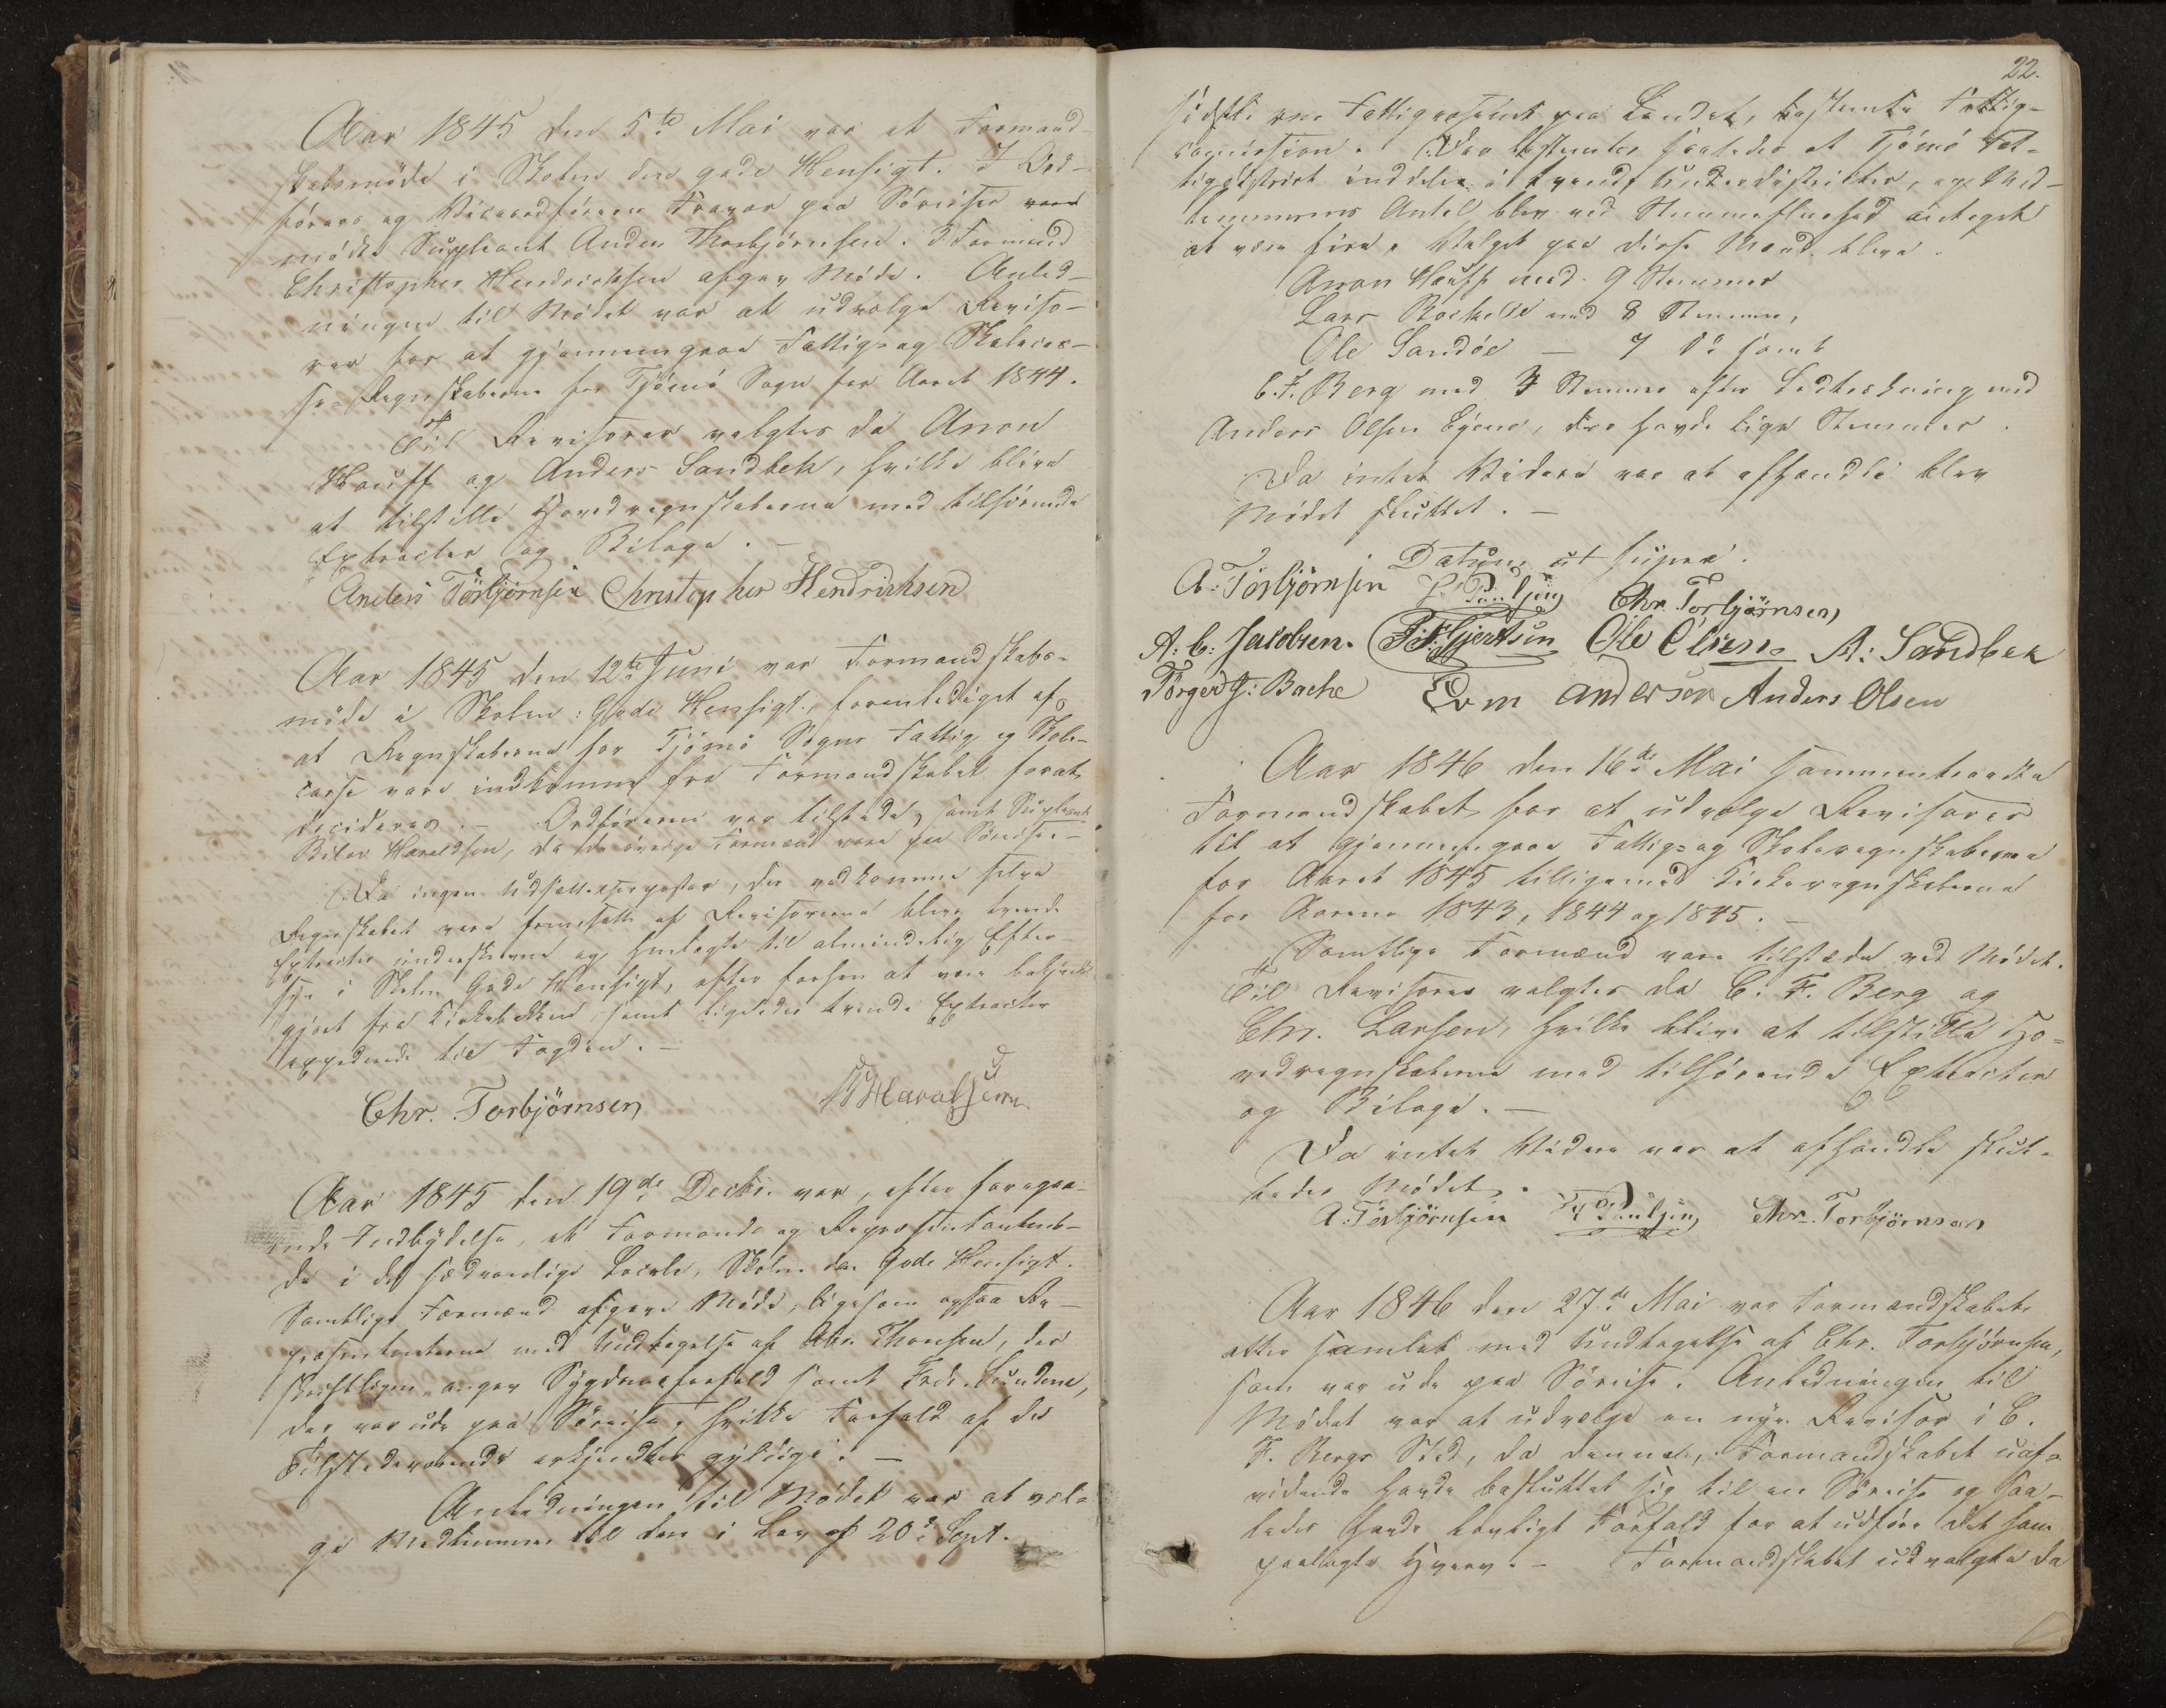 Aar 1845 den 5te Mai var et Formand-
skabsmöde i Skolen den gode Hensigt. I Ord-
förers og Viceordförers Fravær paa Söreiser
mödte Supleant Anders Thorbjörnsen. 3. Formand
Christopher Hendrichsen afgav Möde. Anled-
ningen til Mödet var at udvælge Reviso-
rer for at gjennemgaae Fattig- og Skolecas-
se-Regnskaberne for Tjömö Sogn for Aaret 1844.
Til Revisorer valgtes da Anon
Hauff og Anders Sandbek, hvilke blive
at tilstille Hovedregnskaberne med tilhörende
Extracter og Bilage. —
Anders Törbjörnsen Christopher Hendrichsen
Aar 1845 den 12te Juni var Formandskabs-
möde i Skolen: Gode Hensigt, foranlediget af,
at Regnskaberne for Tjömö Sogns Fattig og Skole-
casse vare indkomne fra Formandskabet forat
decideres. — Ordföreren var tilstede, samt Supleant
Haraldsen, da de övrige Formænd vare paa Söreise. —
Da ingen Udsættelsesposter, der vedkomme selve
Regnskabet vare fremsatte af Revisorerne bleve tvende
Extracter underskrevne og henlagte til almindelig Efter-
syn i Skolen Gode Hensigt, efter forhen at være bekjendt-
gjort fra Kirkebakken, samt ligeledes tvende Extracter
expederede til Fogden. —
Chr. Torbjörnsen Haralsen
Aar 1845 den 19de Decbr. var, efter foregaa-
ende Indbydelse, et Formands og Repræsentantmö-
de i det sædvanlige Locale, Skolen den Gode Hensigt.
Samtlige Formænd afgave Möde, ligesom ogsaa Re-
præsentanterne med Undtagelse af Abr. Thomsen, der
skriftligen angav Sygdomsforfald samt Fredr. Sundene,
der var ude paa Söreise, hvilke Forfald af de
Tilstedeværende erkjendtes gyldige. —
Anledningen til Mödet var at væl-
ge Medlemmer til den i Lov af 20de Sept.
22.
sidstl. om Fattigvæsenet paa Landet, bestemte Fattig-
commission. Der bestemtes saaledes at Tjömö Fat-
tigdistrict inddeles i tvende Underdistricter, og Med-
lemmernes Antal blev ved Stemmefleerhed antaget
at være fire. Valget paa disse Mænd bleve
Anon Hauff med 9 Stemmer
Lars med 8 Stemmer,
Ole Sandöe — 7 do samt
C. F. Berg med 3 Stemmer efter Lodtrækning med
Anders Olsen, der havde lige Stemmer.
Da intet Videre var at afhandle blev
Mödet sluttet. —
Datum ut supra.
A. Törbjörnsen Paulsen Chr. Torbjörnsen
A. C. Jacobsen. Gjertsen Ole Olsen A: Sandbek
Törger J: Bache Evm andersen Anders Olsen
Aar 1846 den 16de Mai sammentraadte
Formandskabet for at udvælge Revisorer
til at gjennemgaae Fattig- og Skoleregnskaberne
for Aaret 1845 tilligemed Kirkeregnskaberne
for Aarene 1843, 1844 og 1845. —
Samtlige Formænd vare tilstæde ved Mödet.
Til Revisorer valgtes da C. F. Berg og
Chr. Larsen, hvilke blive at tilstille Ho-
vedregnskaberne med tilhörende Extracter
og Bilage. —
Da intet Videre var at afhandle slut-
tedes Mödet.
A. Törbjörnsen Paulsen Chr. Torbjörnsen
Aar 1846 den 27de Mai var Formandskabet
atter samlet med Undtagelse af Chr. Torbjörnsen,
som var ude paa Söreise. Anledningen til
Mödet var at udvælge en nye Revisor i C.
F. Bergs Sted, da denne, Formandskabet uaf-
vidende havde besluttet sig til en Söreise og saa-
ledes havde lovligt Forfald for at udföre det ham
paalagte Hverv. — Formandskabet udvalgte da